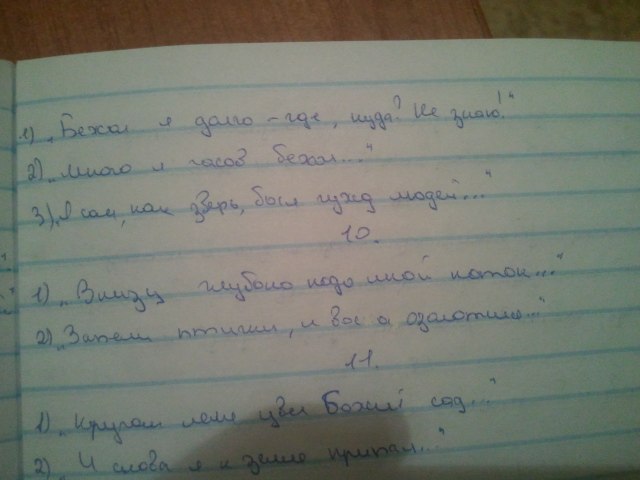 1) „Бежал я долго – где, куда? Не знаю!"
2) „Много я часов бежал..."
3) „Я сам, как зверь, был чужд людей..."
10.
1) „Внизу глубоко подо мной поток..."
2) „Запели птички, и вос озолотила..."
11.
1) „Кругом меня цвел Божий сад..."
2) „И снова я к земле припал..."